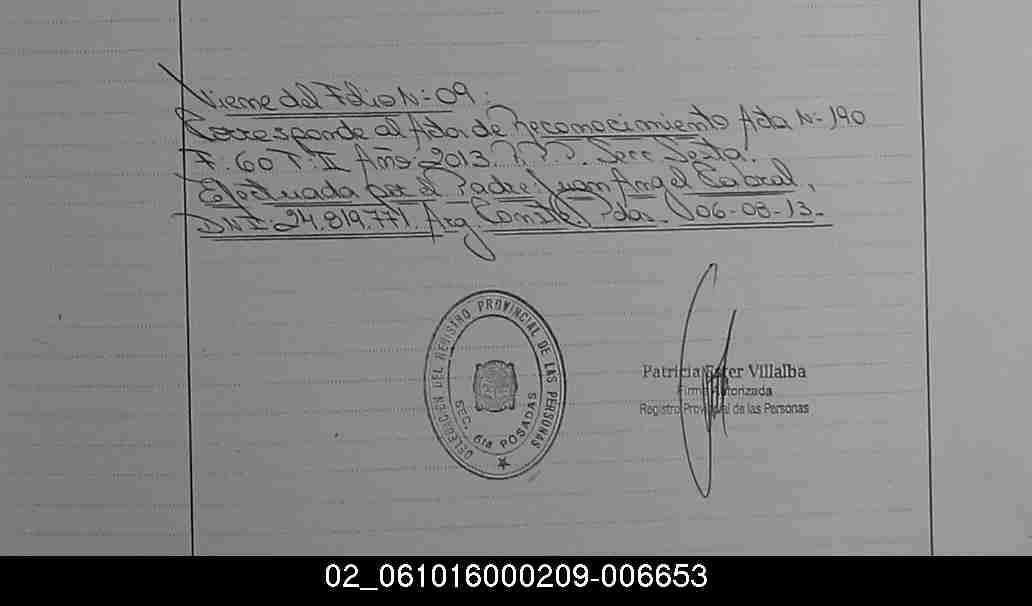 Viene del Folio N: 09:
Corresponde al Acta de Reconocimiento Acta N- 190
F: 60 T: II Año: 2013. Secc Sexta.
Efectuada por el Padre: Juan Angel Cabral,
DNI: 24.819.771. Arg. Pdas. 06-08-13-
DELEGACION DEL REGISTRO PROVINCIAL DE LAS PERSONAS
SEC. 6ta POSADAS
Patricia Ester Villalba
Firma Autorizada
Registro Provincial de las Personas
02_061016000209-006653